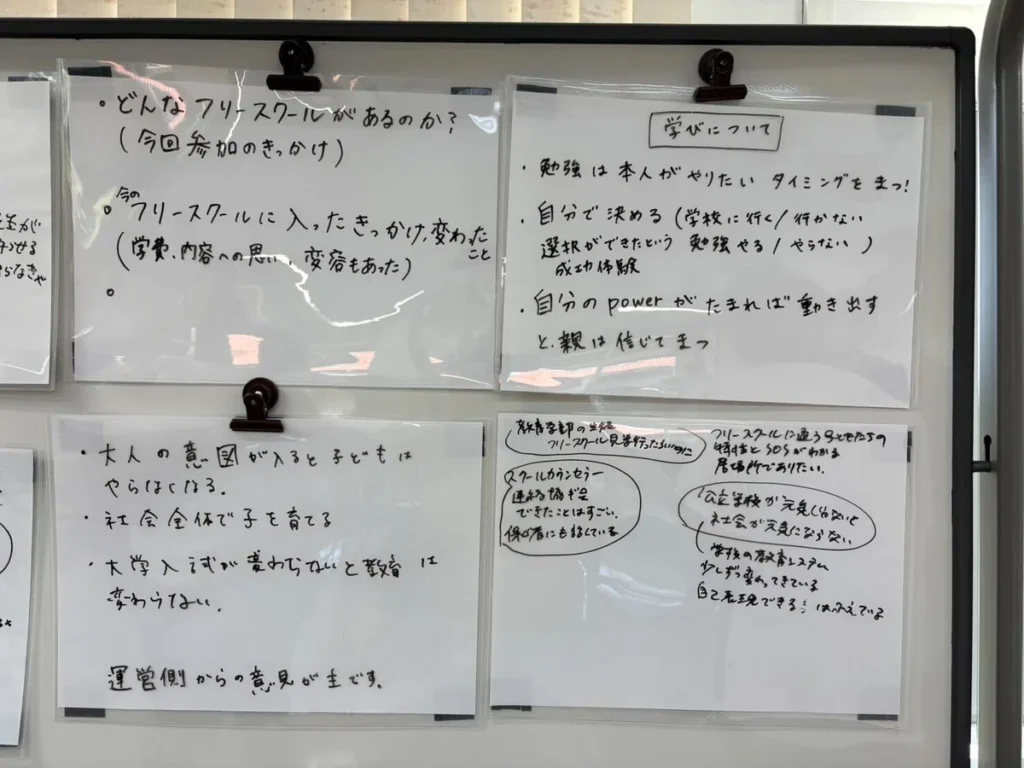 ・どんなフリースクールがあるのか？
(今回参加のきっかけ)
今の
。フリースクールに入ったきっかけ、変わった
こと
(学費、内容への思い、変容もあった)
。
学びについて
・勉強は本人がやりたいタイミングをまつ!
・自分で決める(学校に行く/行かない
選択ができたという 勉強やる/やらない)
成功体験
・自分のpowerがたまれば動き出す
と、親は信じてまつ
・大人の意図が入ると子どもは
やらなくなる.
・社会全体で子を育てる
・大学入試が変わらないと教育は
変わらない.
運営側からの意見が主です.
フリースクール見学行ったらいいのに
スクールカウンセラー
連絡協ギ会
できたことはすごい.
保ゴ者にも
フリースクールに通う子どもたちの
特性とSOSがわかる
居場所でありたい.
公立学校が元気にならないと
社会が元気にならない
学校の教育システム
少しずつ変わってきている
自己表現できる
はふえている